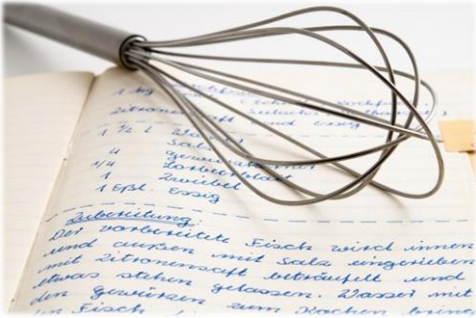 1 kg
Zitronensaft und Essig
1 ½ l Wasser
Salz
4 Gewürzkörner
1/4 Lorbeerblatt
1 Zwiebel
1 Eßl. Essig
Zubereitung:
Der vorbereitete Fisch wird innen
und außen mit Salz eingerieben
mit Zitronensaft beträufelt und
etwas stehen gelassen. Wasser mit
den Gewürzen zum Kochen
Fisch